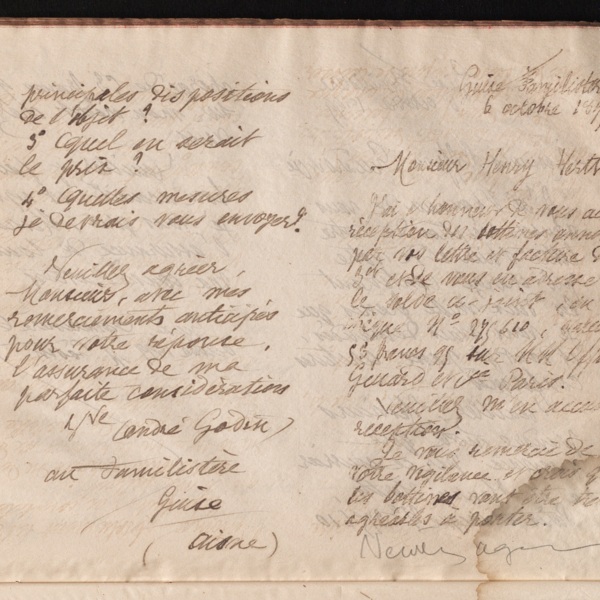 principales dispositions
de l'objet ?
3° Quel en serait
le prix ?
4° Quelles mesures
je devrais vous envoyer ?
Veuillez agréer,
Monsieur, avec mes
remerciements anticipés
pour votre réponse,
l'assurance de ma
parfaite considération
Vve (André Godin)
au Familistère
Guise
(Aisne)
Guise Familistère
6 octobre
Monsieur Henry
J'ai l'honneur de vous
réception des bottines
par vos lettre et facture
et de vous en adresser
le solde ci-joint, en
N° 27,610,
55 francs 95 sur MM.
Gérard et Cie Paris.
Veuillez m'en
réception.
Je vous remercie de
votre vigilance et crois
les bottines vont être
agréables à porter.
Veuillez